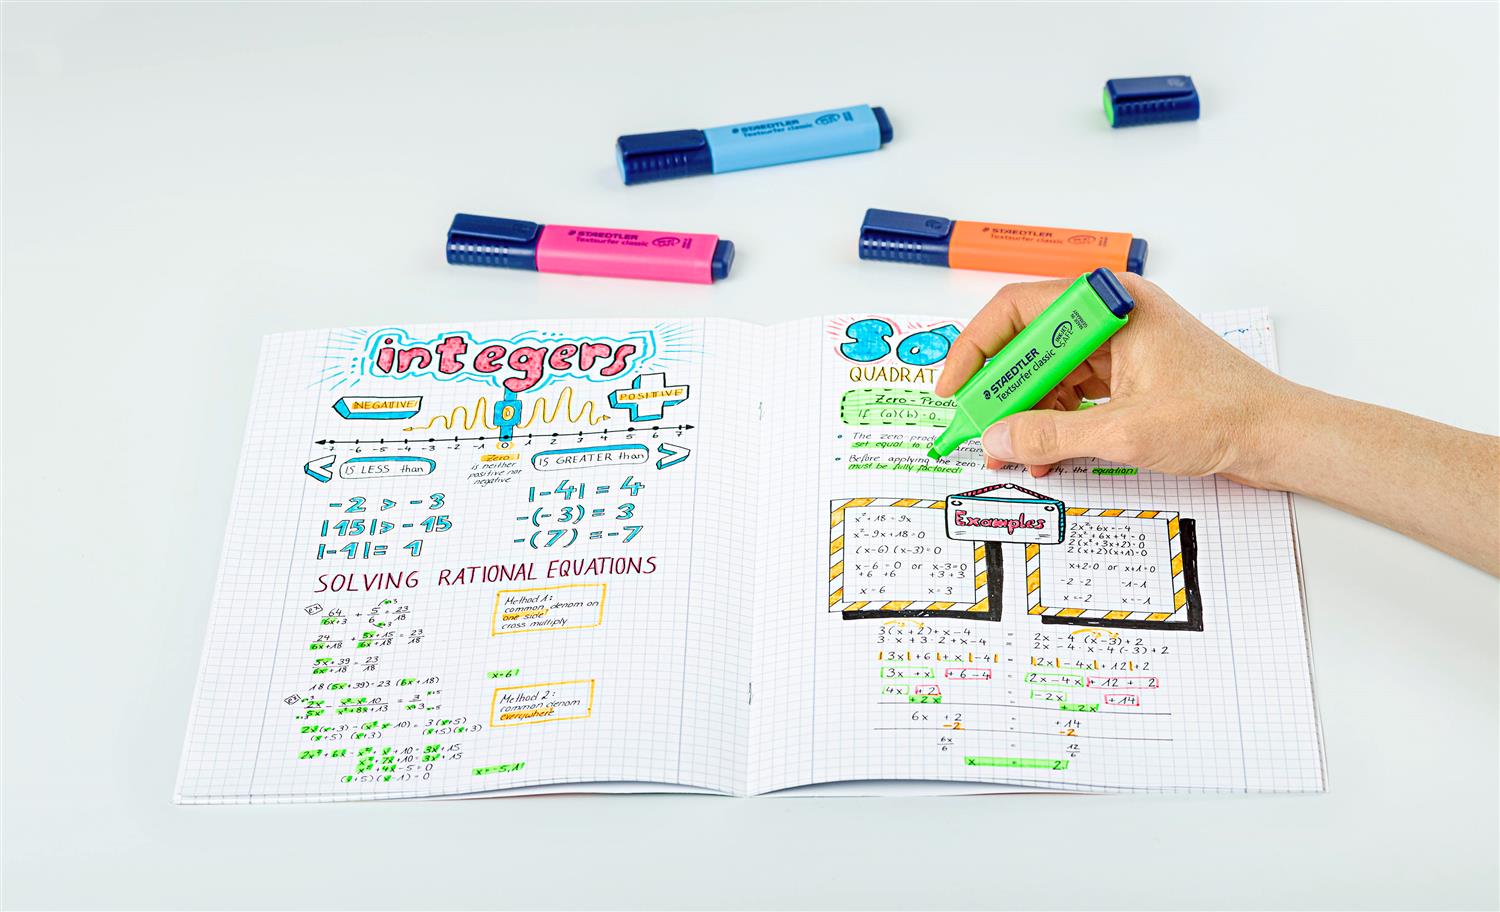 STAEDTLER
Textsurfer classic
STAEDTLER
Textsurfer classic
STAEDTLER
Textsurfer classic
STAEDTLER
Textsurfer classic
INKJET
SAFE
MADE IN
GERMANY
integers
NEGATIVE
POSITIVE
-7 -6 -5 -4 -3 -2 -1 0 1 2 3 4 5 6 7
IS LESS than
Zero
is neither
positive nor
negative
IS GREATER than
-2 > -3
|15| > -15
|-1| = 1
|-4| = 4
-(-3) = 3
-(7) = -7
SOLVING RATIONAL EQUATIONS
Method 1:
common denom on
one side
cross multiply
18(5x+39)=23(6x+18)
x=6
Method 2:
common denom
everywhere
2x(x+3)-(x²-x-10)=3(x+5)
(x+5)(x+3) (x+5)(x+3)
2x²+6x-x²+x+10=3x+15
x²+7x+10=3x+15
x²+4x-5=0
(x+5)(x-1)=0
x=-5,1
So
QUADRAT
Zero-Produ
If (a)(b)=0,
The zero-prod
set equal to 0
Before applying the zero-p
must be fully factored!
the equation
Examples
x²+18=9x
x²-9x+18=0
(x-6)(x-3)=0
x-6=0 or x-3=0
+6 +6 +3 +3
x=6 x=3
2x²+6x=-4
2x²+6x+4=0
2(x²+3x+2)=0
2(x+2)(x+1)=0
x+2=0 or x+1=0
-2 -2 -1 -1
x=-2 x=-1
3(x+2)+x-4 = 2x-4(x-3)+2
3·x+3·2+x-4 = 2x-4·x-4(-3)+2
|3x|+6|+x|-4| = |2x|-4x|+12|+2
3x+x +6-4 = 2x-4x +12+2
4x +2 = -2x +14
+2x +2x
6x +2 = +14
-2 -2
6x/6 = 12/6
x = 2